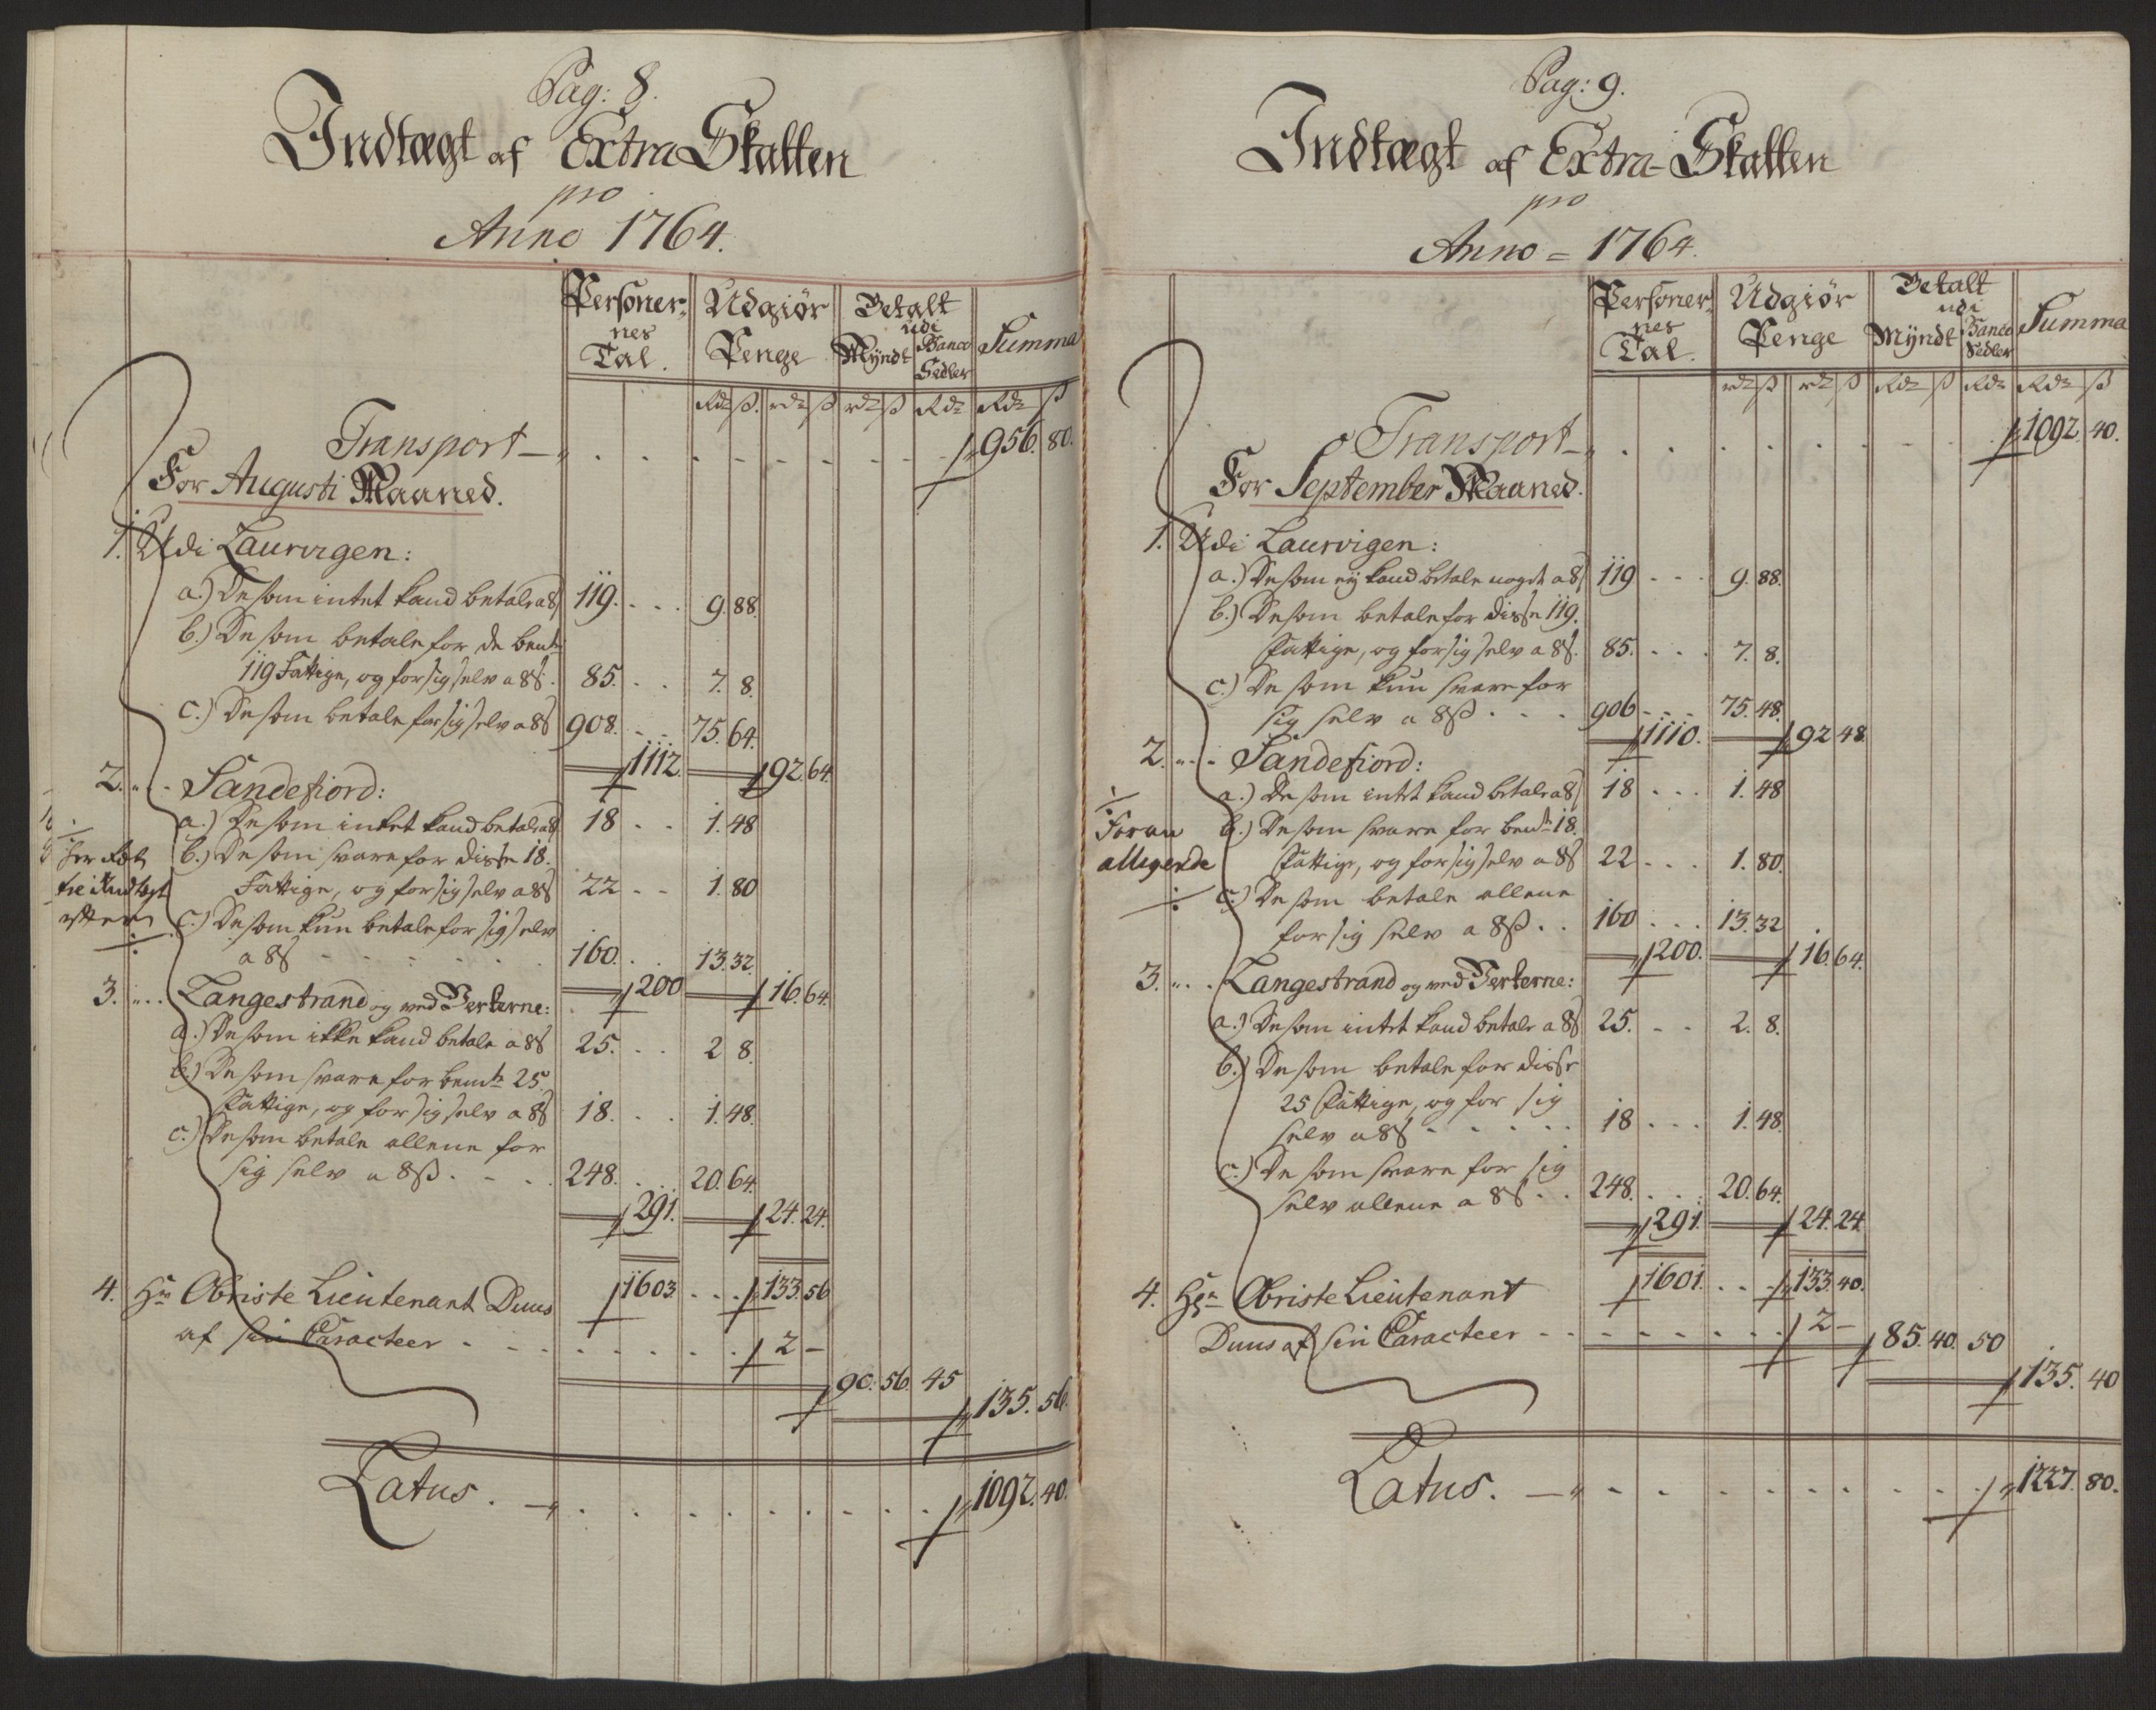 Pag: 8.
Indtægt af Extra Skatten
pro
Anno 1764.
Personer-
nes
Tal.
Udgiør
Penge
Betalt
udi
Myndt
Banco
Sedler
Summa
Rdr ß. rdr ß rdr ß Rdr Rdr ß
Transport - 956. 80.
For Augusti Maaned.
1. Udi Laurvigen:
a.) De som intet kand betale a 8ß 119. 9. 88.
b.) De som betale for de bemte
119 Fattige, og for sig selv a 8ß. 85. 7. 8.
c.) De som betale for sig selv a 8ß 908. 75. 64.
1112. 92. 64.
2. Sandefiord:
a.) De som intet kand betale a 8ß 18 1. 48
b.) De som svare for disse 18.
Fattige, og for sig selv a 8ß 22 1. 80
c.) De som kun betale for sig selv
a 8ß 160. 13. 32.
200 16. 64.
3. Langestrand og ved Verkerne:
a.) De som ikke kand betale a 8ß 25. 2 8.
b.) De som svare for bemte 25.
Fattige, og for sig selv a 8ß 18. 1. 48.
c.) De som betale allene for
sig selv a 8ß. 248. 20. 64.
291. 24. 24.
1603 133. 56
4. Hr Obriste Lieutenant Duus
af sin Caracteer 2 -
90. 56. 45
135. 56.
Latus. 1092. 40.
Pag: 9.
Indtægt af Extra-Skatten
pro
Anno = 1764.
Personer-
nes
Tal.
Udgiør
Penge
Betalt
udi
Myndt
Banco
Sedler
Summa
rdr ß rdr ß Rdr ß Rdr Rdr ß
Transport - 1092. 40.
For September Maaned.
1. Udi Laurvigen:
a.) De som ej kand betale noget a 8ß 119 9. 88.
b.) De som betale for disse 119.
Fattige, og for sig selv a 8ß. 85. 7. 8.
c.) De som kun svare for
sig selv a 8ß 906 75. 48.
1110. 92 48
2. Sandefiord:
a.) De som intet kand betale a 8ß 18 1. 48
Foran
allegerede
b.) De som svare for bemte 18.
Fattige, og for sig selv a 8ß 22 1. 80.
c.) De som betale allene
for sig selv a 8ß. 160 13. 32
200. 16. 64.
3. Langestrand og ved Verkerne:
a.) De som intet kand betale a 8ß 25. 2. 8.
b.) De som betale for disse
25 Fattige, og for sig
selv a 8ß 18 1. 48.
c.) De som svare for sig
selv allene a 8ß 248. 20. 64.
291. 24. 24
1601. 133. 40.
4. Hr Obriste Lieutenant
Duus af sin Caracteer 2 -
85. 40. 50
135. 40
Latus. 1227. 80.